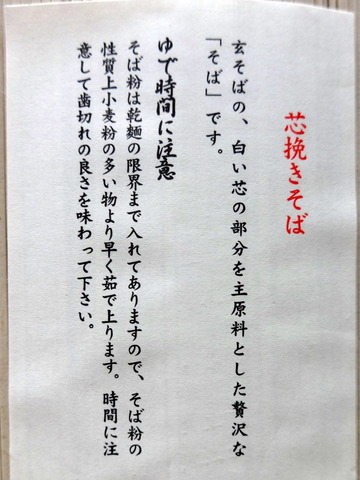 芯挽きそば
玄そばの、白い芯の部分を主原料とした贅沢な
「そば」です。
ゆで時間に注意
そば粉は乾麺の限界まで入れてありますので、そば粉の
性質上小麦粉の多い物より早く茹で上ります。時間に注
意して歯切れの良さを味わって下さい。